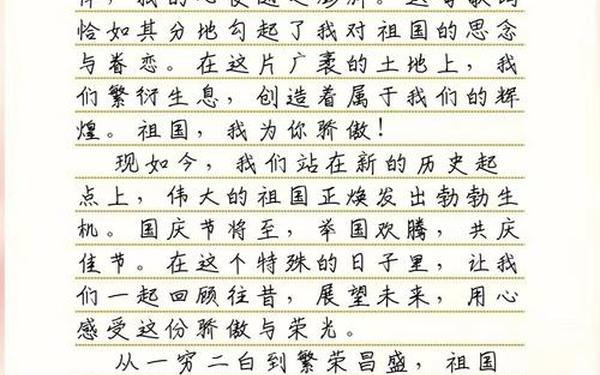 恰如其分地勾起了我对祖国的思念
与眷恋。在这片广袤的土地上，我
们繁衍生息，创造着属于我们的辉
煌。祖国，我为你骄傲！
现如今，我们站在新的历史起
点上，伟大的祖国正焕发出勃勃生
机。国庆节将至，举国欢腾，共庆
佳节。在这个特殊的日子里，让我
们一起回顾往昔，展望未来，用心
感受这份骄傲与荣光。
从一穷二白到繁荣昌盛，祖国